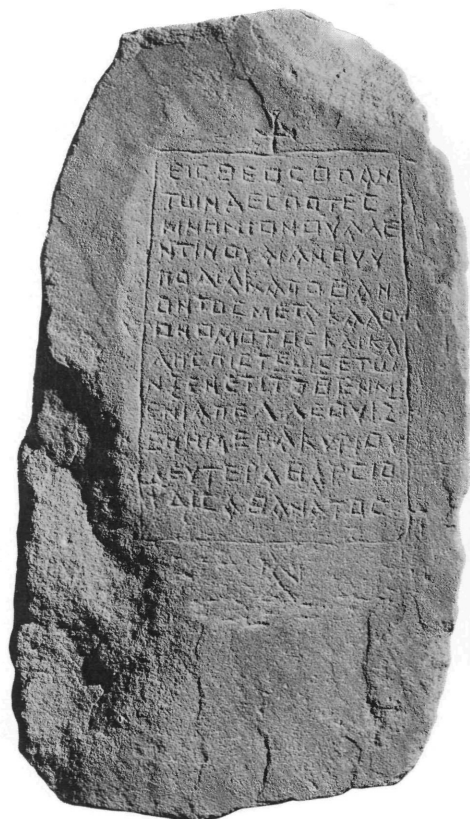 ΕΙСΘΕΟСΟΠΑΝ
ΤΩΝΔΕСΠΟΤΕС
ΜΝΗΜΙΟΝΟΥΑΛΕ
ΝΤΙΝΟΥΜΑΝΟΥΥ
ΠΟΔΙΑΚΑΠΟΘΑΝ
ΟΝΤΟСΜΕΤΑΚΑΛΟΥ
ΟΝΟΜΟΤΟСΚΑΙΚΑ
ΛΗСΠΙСΤΕΩСΕΤΩ
ΝΞΕΝΕΤΙΤϘΒΕΝΜ
ΕΝΙΑΠΕΛΛΕΟΥΙΣ
ΕΝΗΜΕΡΑΚΥΡΙΟΥ
ΔΕΥΤΕΡΑΘΑΡСΙΟ
ΥΔΙСΑΘΑΝΑΤΟС